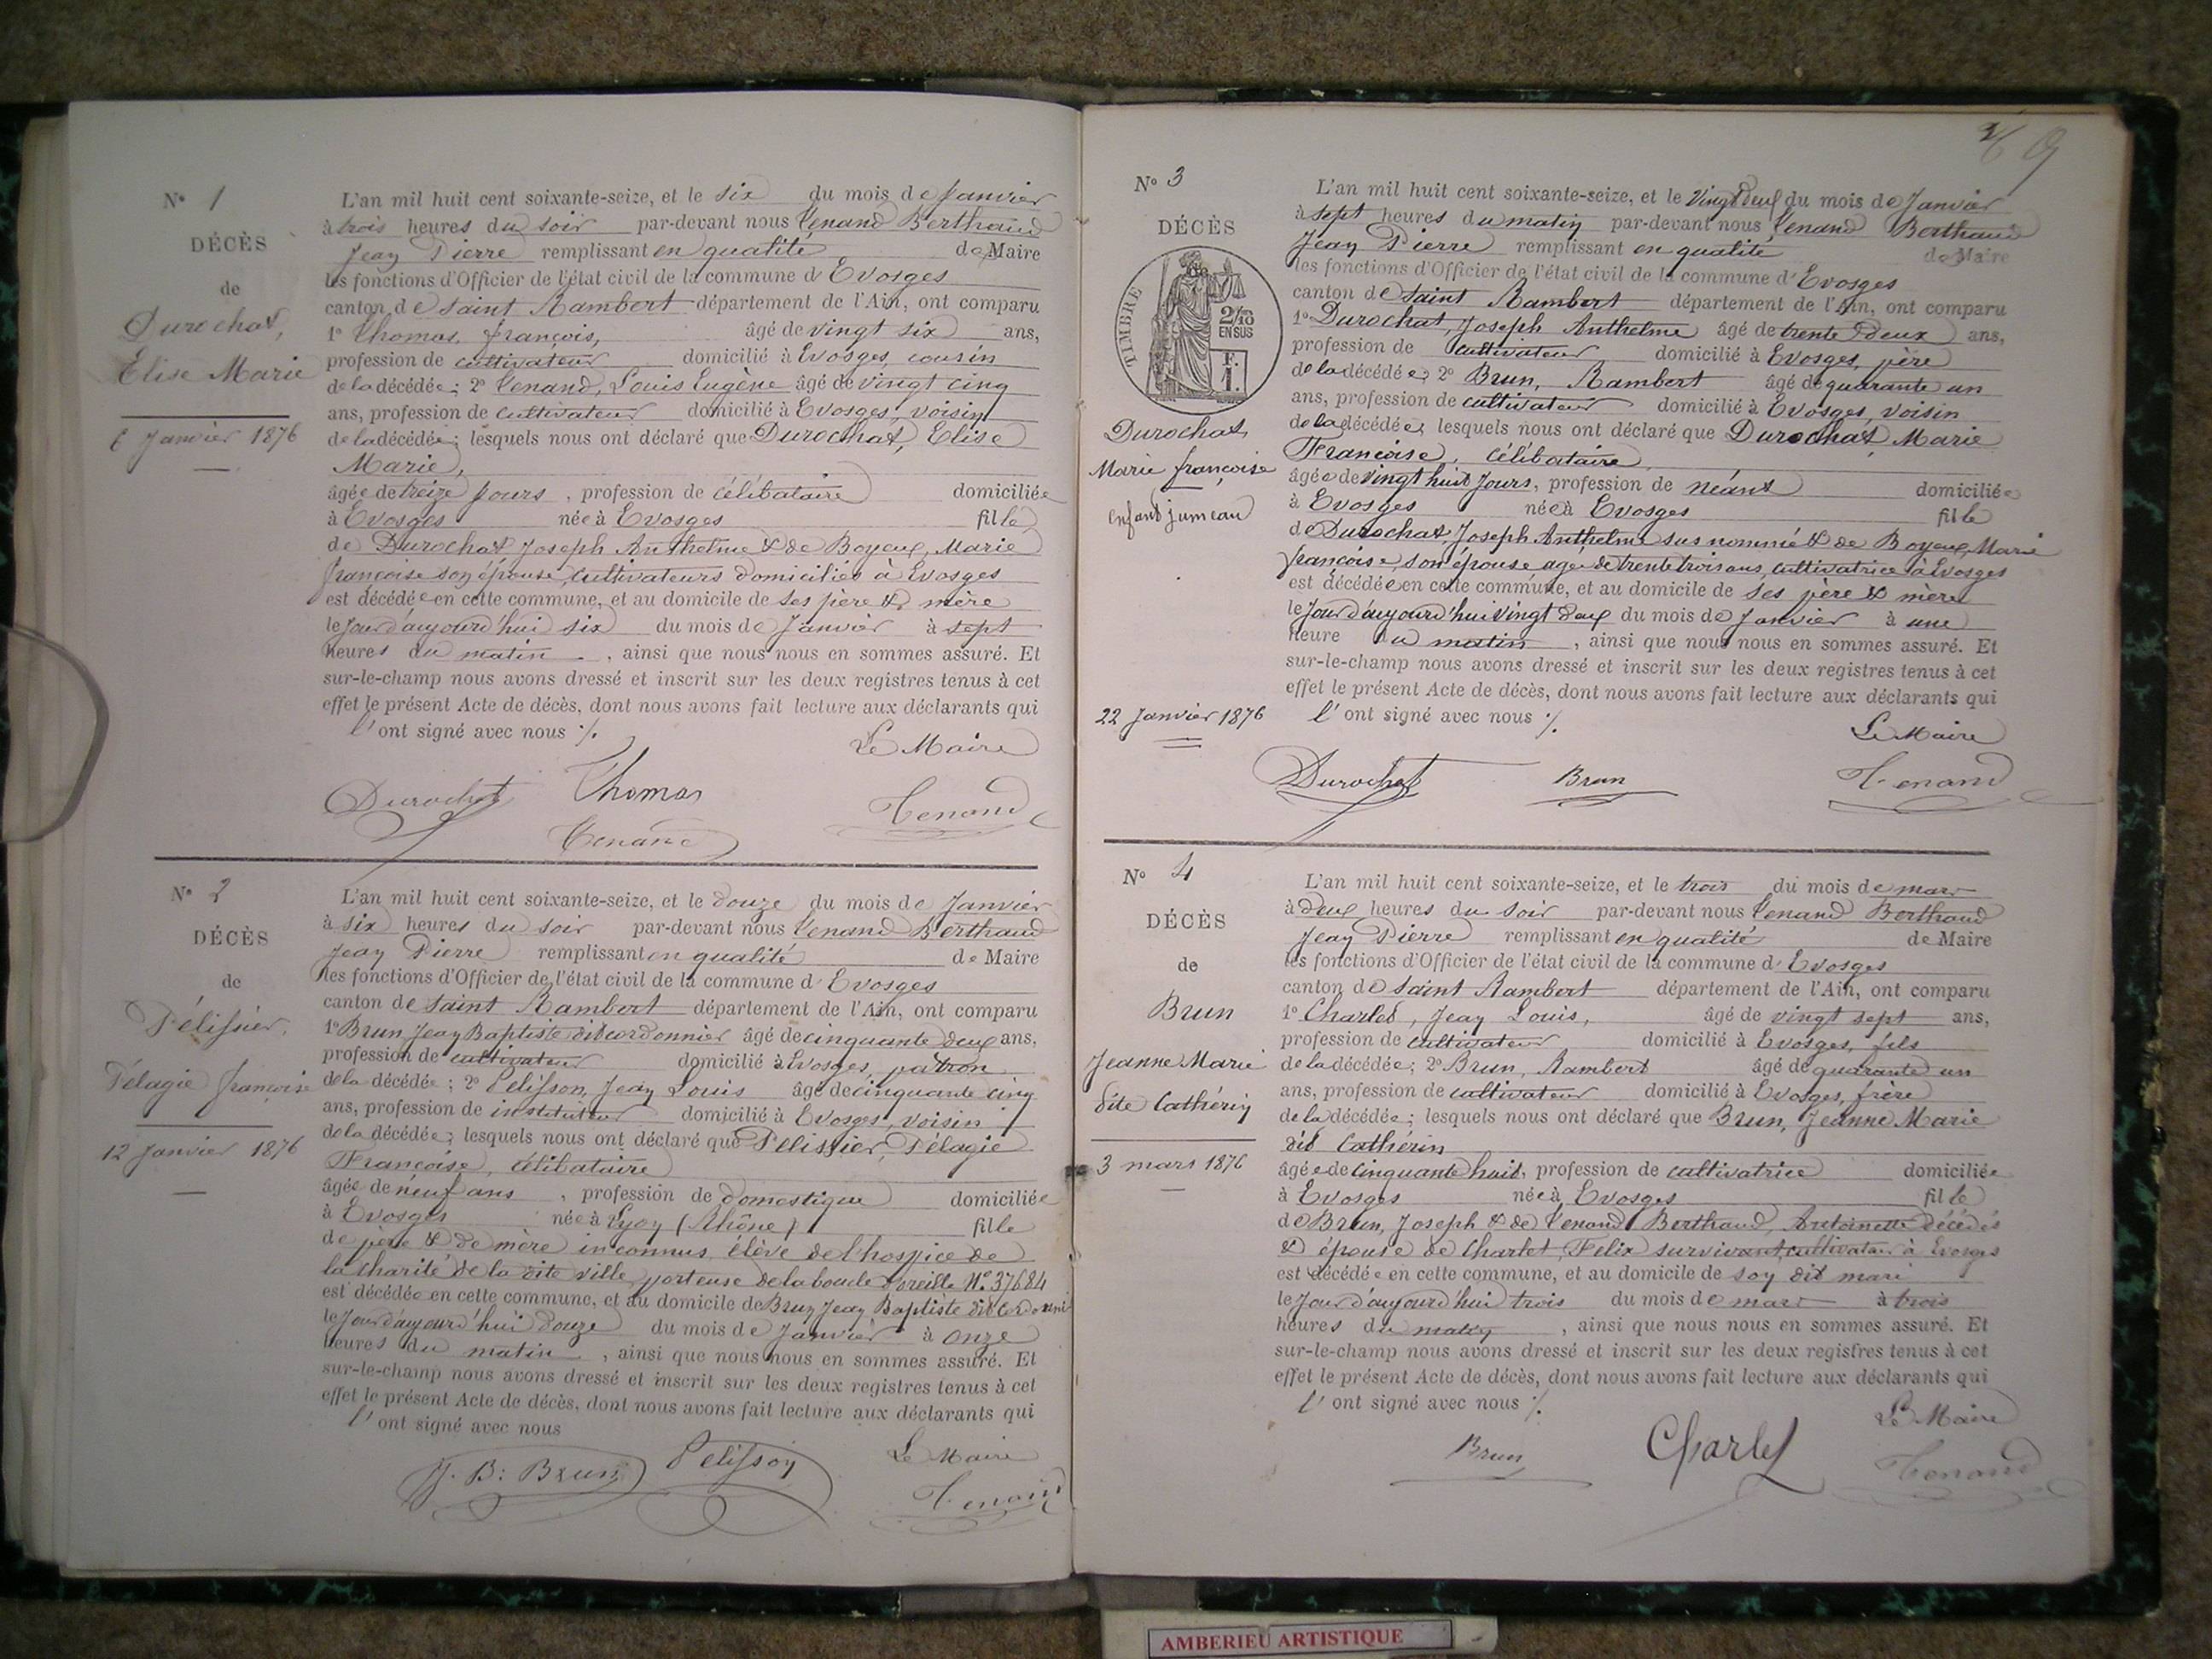 N° 1
DÉCÈS
de
Durochat,
Elise Marie
6 Janvier 1876
L'an mil huit cent soixante-seize, et le six du mois de Janvier
à trois heures du soir par-devant nous Tenand Berthand
Jean Pierre remplissant en qualité de Maire
les fonctions d'Officier de l'état civil de la commune d'Evosges
canton de Saint Rambert département de l'Ain, ont comparu
1° Thomas, françois, âgé de vingt six ans,
profession de cultivateur domicilié à Evosges, cousin
de la décédée; 2° Tenand, Louis Eugène âgé de vingt cinq
ans, profession de cultivateur domicilié à Evosges, voisin
de la décédée; lesquels nous ont déclaré que Durochat, Elise
Marie,
âgée de treize jours, profession de célibataire domiciliée
à Evosges née à Evosges fille
de Durochat Joseph Anthelme & de Boyeux, Marie
françoise son épouse cultivateurs domiciliés à Evosges
est décédée en cette commune, et au domicile de ses père & mère
le jour d'aujourd'hui six du mois de Janvier à sept
heures du matin, ainsi que nous nous en sommes assuré. Et
sur-le-champ nous avons dressé et inscrit sur les deux registres tenus à cet
effet le présent Acte de décès, dont nous avons fait lecture aux déclarants qui
l'ont signé avec nous ./.
Le Maire
Durochat Thomas Tenand
Tenand
N° 2
DÉCÈS
de
Pélissier,
Pélagie françoise
12 Janvier 1876
L'an mil huit cent soixante-seize, et le douze du mois de Janvier
à six heures du soir par-devant nous Tenand Berthand
Jean Pierre remplissant en qualité de Maire
les fonctions d'Officier de l'état civil de la commune d'Evosges
canton de Saint Rambert département de l'Ain, ont comparu
1° Brun Jean Baptiste dit cordonnier âgé de cinquante deux ans,
profession de cultivateur domicilié à Evosges, patron
de la décédée; 2° Pelisson, Jean Louis âgé de cinquante cinq
ans, profession de instituteur domicilié à Evosges, voisin
de la décédée; lesquels nous ont déclaré que Pelissier, Pélagie
Françoise, célibataire
âgée de neuf ans, profession de domestique domiciliée
à Evosges née à Lyon (Rhône) fille
de père & de mère inconnus, élève de l'hospice de
la charité de la dite ville, porteuse de la boucle d'oreille N° 37684
est décédée en cette commune, et au domicile de Brun Jean Baptiste dit Cordonnier
le jour d'aujourd'hui douze du mois de Janvier à onze
heures du matin, ainsi que nous nous en sommes assuré. Et
sur-le-champ nous avons dressé et inscrit sur les deux registres tenus à cet
effet le présent Acte de décès, dont nous avons fait lecture aux déclarants qui
l'ont signé avec nous
Le Maire
J. B: Brun Pelisson Tenand
9
N° 3
DÉCÈS
TIMBRE
2/10
EN SUS
F.
1.
Durochat
Marie françoise
enfant jumeau
22 Janvier 1876
L'an mil huit cent soixante-seize, et le Vingt deux du mois de Janvier
à sept heures du matin par-devant nous Tenand Berthand
Jean Pierre remplissant en qualité de Maire
les fonctions d'Officier de l'état civil de la commune d'Evosges
canton de Saint Rambert département de l'Ain, ont comparu
1° Durochat, Joseph Anthelme âgé de trente deux ans,
profession de cultivateur domicilié à Evosges, père
de la décédée; 2° Brun, Rambert âgé de quarante un
ans, profession de cultivateur domicilié à Evosges, voisin
de la décédée; lesquels nous ont déclaré que Durochat Marie
Françoise, célibataire
âgée de vingt huit jours, profession de néant domiciliée
à Evosges née à Evosges fille
de Durochat, Joseph Anthelme sus nommé & de Boyeux, Marie
françoise, son épouse agée de trente trois ans, cultivatrice à Evosges
est décédée en cette commune, et au domicile de ses père & mère
le jour d'aujourd'hui vingt deux du mois de Janvier à une
heure du matin, ainsi que nous nous en sommes assuré. Et
sur-le-champ nous avons dressé et inscrit sur les deux registres tenus à cet
effet le présent Acte de décès, dont nous avons fait lecture aux déclarants qui
l'ont signé avec nous ./.
Le Maire
Durochat Brun Tenand
N° 4
DÉCÈS
de
Brun
Jeanne Marie
dite Cathérin
3 mars 1876
L'an mil huit cent soixante-seize, et le trois du mois de mars
à deux heures du soir par-devant nous Tenand Berthand
Jean Pierre remplissant en qualité de Maire
les fonctions d'Officier de l'état civil de la commune d'Evosges
canton de Saint Rambert département de l'Ain, ont comparu
1° Charlet, Jean Louis, âgé de vingt sept ans,
profession de cultivateur domicilié à Evosges, fils
de la décédée; 2° Brun, Rambert âgé de quarante un
ans, profession de cultivateur domicilié à Evosges, frère
de la décédée; lesquels nous ont déclaré que Brun, Jeanne Marie
dit Cathérin
âgée de cinquante huit, profession de cultivatrice domiciliée
à Evosges née à Evosges fille
de Brun, Joseph & de Tenand Berthand, Antoinette décédés
& épouse de Charlet, Felix survivant cultivateur à Evosges
est décédée en cette commune, et au domicile de son dit mari
le jour d'aujourd'hui trois du mois de mars à trois
heures du matin, ainsi que nous nous en sommes assuré. Et
sur-le-champ nous avons dressé et inscrit sur les deux registres tenus à cet
effet le présent Acte de décès, dont nous avons fait lecture aux déclarants qui
l'ont signé avec nous ./.
Le Maire
Brun Charlet Tenand
AMBERIEU ARTISTIQUE